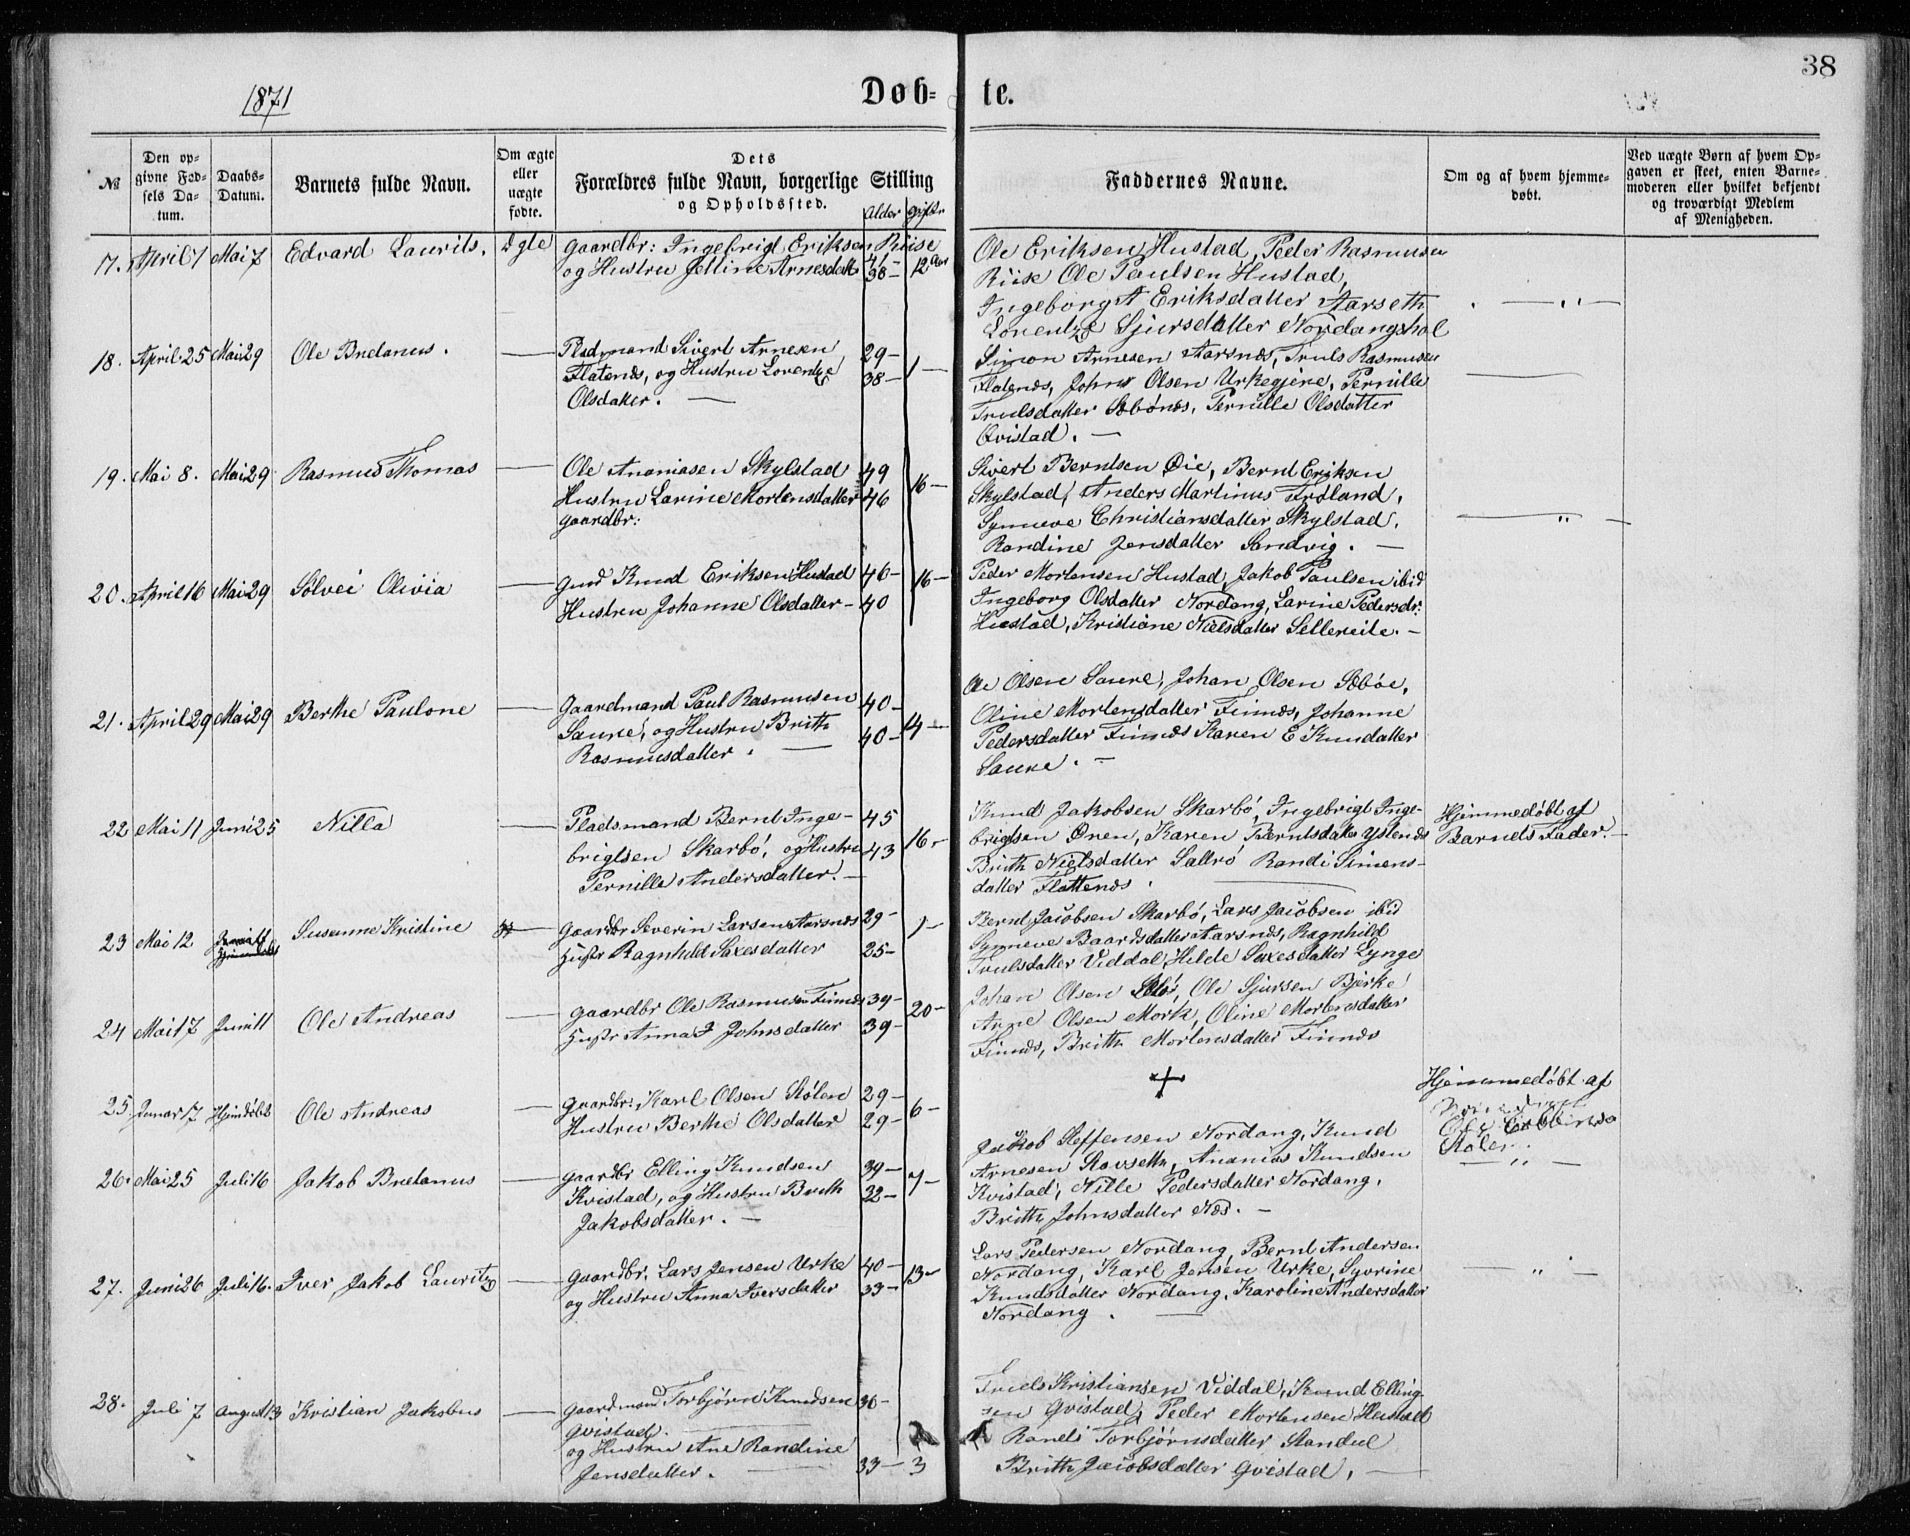 38
1871
Døb=
te.
№
Den op=
givne Fød=
sels Da=
tum.
Daabs=
Datum.
Barnets fulde Navn.
Om ægte
eller
uægte
fødte.
Dets
Forældres fulde Navn, borgerlige Stilling
og Opholdssted.
Alder
Gifte
Faddernes Navne.
Om og af hvem hjemme=
døbt.
Ved uægte Børn af hvem Op=
gaven er skeet, enten Barne=
moderen eller hvilket bekjendt
og troværdigt Medlem
af Menigheden.
17. April 7 Mai 7 Edvard Laurits. Ægte Gaardbr: Ingebrigt Eriksen Riise 41
og Hustru Jelline Arnesdatt 38 — 12 Aar
Ole Eriksen Hustad, Peder Rasmusen
Riise Ole Paulsen Hustad,
Ingeborg A Eriksdatter Aarseth
Lorentze Sjursdatter Nordangshol
18. April 25 Mai 29 Ole Bretanus. — Pladsmand Sivert Arnesen 29 —
Flatenæs, og Hustru Lorentze 38 — 1 —
Olsdatter. —
Simon Arnesen Aarsnæs, Truls Rasmusen
Flatenæs, John Olsen Urkegjerde, Pernille
Trulsdatter Sæbønæs, Pernille Olsdatter
Qvistad. —
19. Mai 8. Mai 29 Rasmus Thomas — Ole Ananiasen Skylstad 49
Hustru Larine Mortensdatter 46 16 —
Gaardbr:
Sivert Berntsen Øie, Bernt Eriksen
Skylstad, Anders Martinus Frøland,
Synneve Christiansdatter Skylstad,
Randine Jensdatter Sandvig. —
20. April 16 Mai 29 Sølvei Olivia — Gmd Knud Eriksen Hustad 46 — 16 —
Hustru Johanne Olsdatter — 40
Peder Mortensen Hustad, Jakob Paulsen ibid
Ingeborg Olsdatter Nordang, Larine Pedersdr:
Hustad, Kristiane Nielsdatter Sellereite. —
21. April 29 Mai 29 Berthe Paulone — Gaardmand Paul Rasmusen 40 —
Saure, og Hustru Brith 40 — 14 —
Rasmusdatter. —
Ole Olsen Saure, Johan Olsen Sæbøe,
Oline Mortensdatter Finnæs, Johanne
Pedersdatter Finnæs Karen E Knudatter
Saure. —
22 Mai 11 Juni 25 Nilla — Pladsmand Bernt Inge= 45
brigtsen Skarbø, og Hustru 43 16 —
Pernille Andersdatter. —
Knud Jakobsen Skarbø, Ingebrigt Inge=
brigtsen Øren, Karen Berntsdatter Ystenæs
Brith Nielsdatter Saltrø Randi Simens=
datter Flattenæs.
Hjemmedøbt af
Barnets Fader. —
23 Mai 12 Susanne Kristine Gaardbr Severin Larsen Aarsnæs 29 —
Hustr Ragnhild Saxesdatter 25 — 1 —
Bernt Jacobsen Skarbø, Lars Jacobsen ibid
Synneve Baardsdatter Aarsnæs, Ragnhild
Trulsdatter Viddal, Hilde Saxesdatter Lynge
24 Mai 17 Juni 11 Ole Andreas — Gaardbr Ole Rasmusen Finnæs 39 —
Hustr Anna J Johnsdatter 39 — 20 —
Johan Olsen Sæbø, Ole Sjursen Bjerke
Anne Olsen Mork, Oline Mortensdatter
Finnæs, Brith Mortensdatter Finnæs
25. Januar 17 Hjemdøbt Ole Andreas — Gaardbr: Karl Olsen Stølen 29 —
Hustru Berthe Olsdatter 29 — 6 —
Hjemmedøbt af
Stølen
26. Mai 25 Juli 16 Jakob Bretanus — Gaardbr Elling Knudsen 39 —
Kvistad, og Hustru Brith 32 — 7 —
Jakobsdatter. —
Jakob Steffensen Nordang, Knud
Arnesen Rovseth, Ananias Knudsen
Kvistad, Nille Pedersdatter Nordang,
Brith Johnsdatter Næs. —
27. Juni 26 Juli 16. Iver Jakob Lauritz — Gaardbr. Lars Jensen Urke 40 —
og Hustru Anna Iversdatter 33 — 13 —
Lars Pedersen Nordang, Bernt Andersen
Nordang, Karl Jensen Urke, Syvrine
Knudsdatter Nordang, Karoline Andersdatter
Nordang.
28. Juli 7 August 13 Kristian Jakobus — Gaardmand Torbjørn Knudsen 36 —
Qvistad.
og Hustru Ane Randine
Jensdatter. 33 — 3
Truels Kristiansen Viddal, Knud Elling=
sen Qvistad, Peder Mortensen Hustad
Randi Torbjørnsdatter Standal
Brith Jacobsdatter Qvistad. —